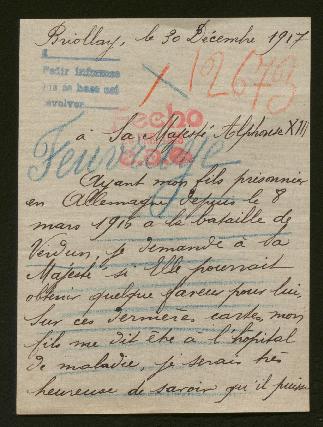 Briollay, le 30 Décembre 1917
Pedir informes
que se hace así
devolver
12673
Hecho
à Sa Majesté Alphonse XIII
Ayant mon fils prisonnier
en Allemagne depuis le 8
mars 1916 à la bataille de
Verdun, je demande à Sa
Majesté si Elle pourrait
obtenir quelque faveur pour lui,
Sur ces dernières cartes mon
fils me dit être à l'hôpital
de maladie, je serais très
heureuse de savoir qu'il puisse